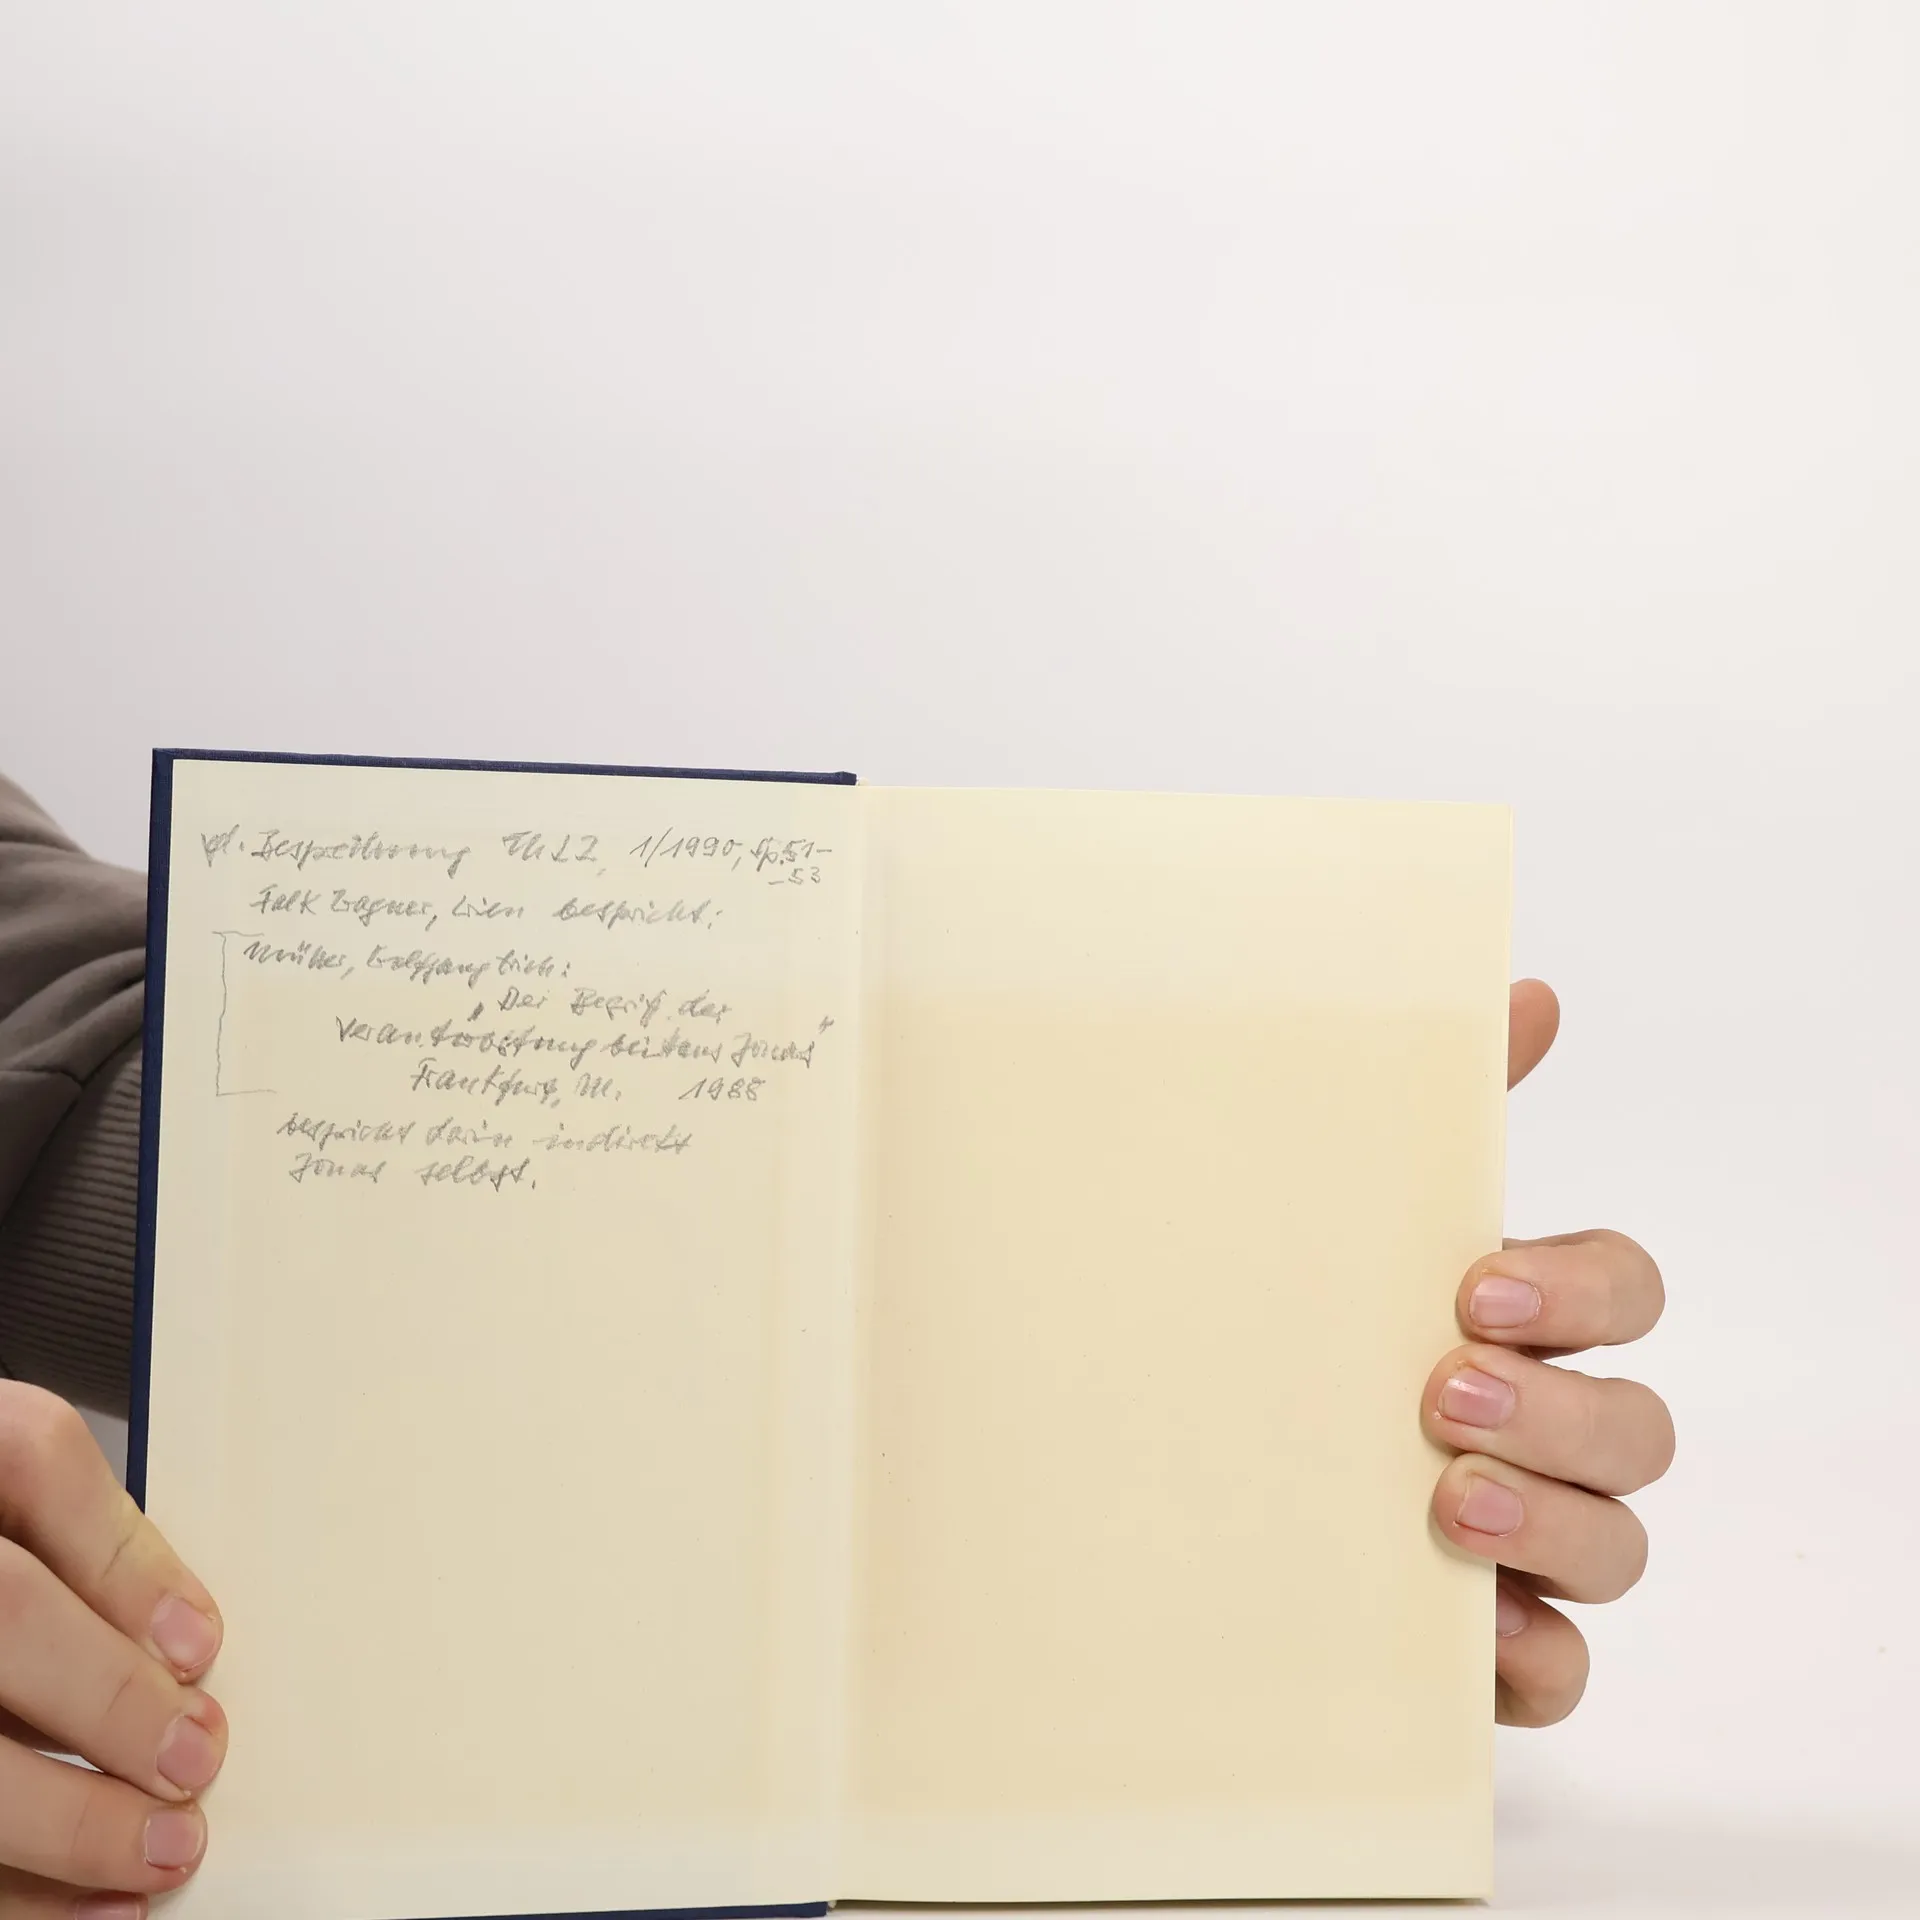 vgl. Besprechung ThLZ, 1/1990, Sp. 51-
-53
Falk Wagner, Wien bespricht:
Müller, Wolfgang Erich:
"Der Begriff der
Verantwortung bei Hans Jonas"
Frankfurt, M. 1988
bespricht darin indirekt
Jonas selbst.